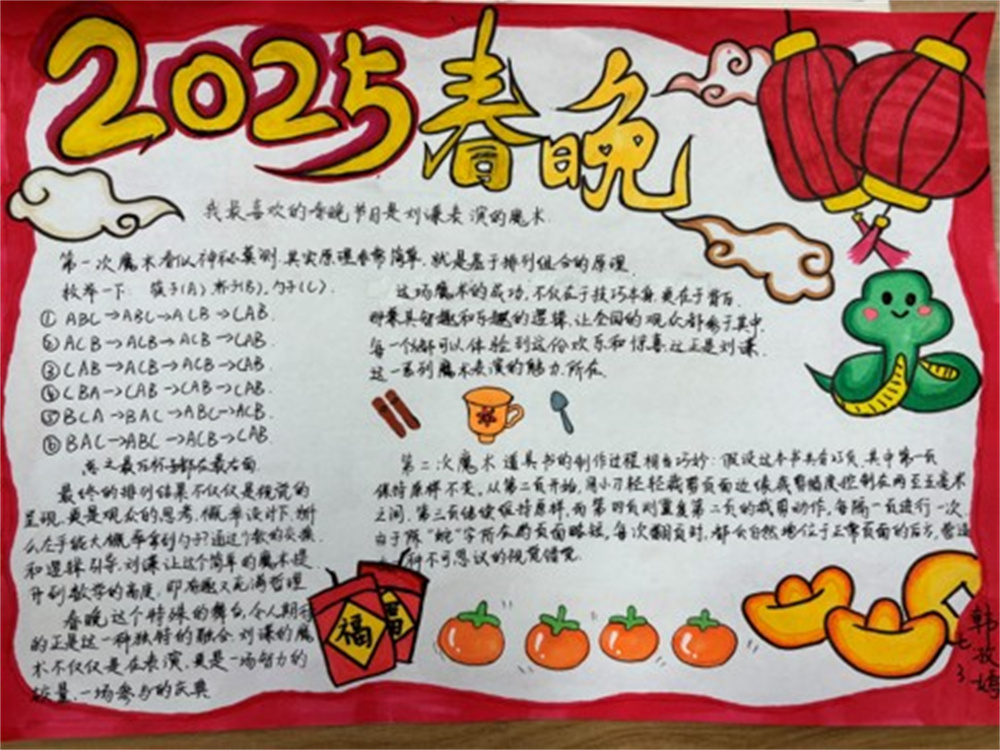 2025春晚
我最喜欢的春晚节目是刘谦表演的魔术.
第一次魔术看似神秘莫测.其实原理非常简单,就是基于排列组合的原理.
枚举一下: 筷子(A) 杯子(B),勺子(C).
① ABC→ABC→ACB→CAB.
② ACB→ACB→ACB→CAB.
③ CAB→ACB→ACB→CAB.
④ CBA→CAB→CAB→CAB.
⑤ BCA→BAC→ABC→ACB.
⑥ BAC→ABC→ACB→CAB.
总之最后杯子都在最右面
最终的排列结果不仅仅是视觉的
呈现.更是观众的思考,概率设计下,
么左手能大概率拿到勺子?通过个数的交换
和逻辑引导.刘谦让这个简单的魔术提
升到数学的高度,即有趣又充满哲理
春晚这个特殊的舞台,令人期待
的正是这一种独特的融合.刘谦的魔
术不仅仅是在表演,更是一场智力的
较量.一场参与的庆典
这场魔术的成功,不仅在于技巧本身,更在于背后
那兼具智趣和乐趣的逻辑,让全国的观众都参于其中,
每一个都可以体验到这份欢乐和惊喜.这正是刘谦,
这一系列魔术表演的魅力所在.
第二次魔术道具书的制作过程相当巧妙:假设这本书共有页.其中第一页
保持原样不变。从第二页开始,用小刀轻轻裁剪页面边缘,裁剪幅度控制在两至五毫米
之间.第三页继续保持原样,而第四页则重复第二页的裁剪动作,每隔一页进行一次
由于所“蛇”字所在的页面略短,每次翻页时,都会自然地位于正常页面的后方,营造
种不可思议的视觉错觉.
福
福
七
3
韩